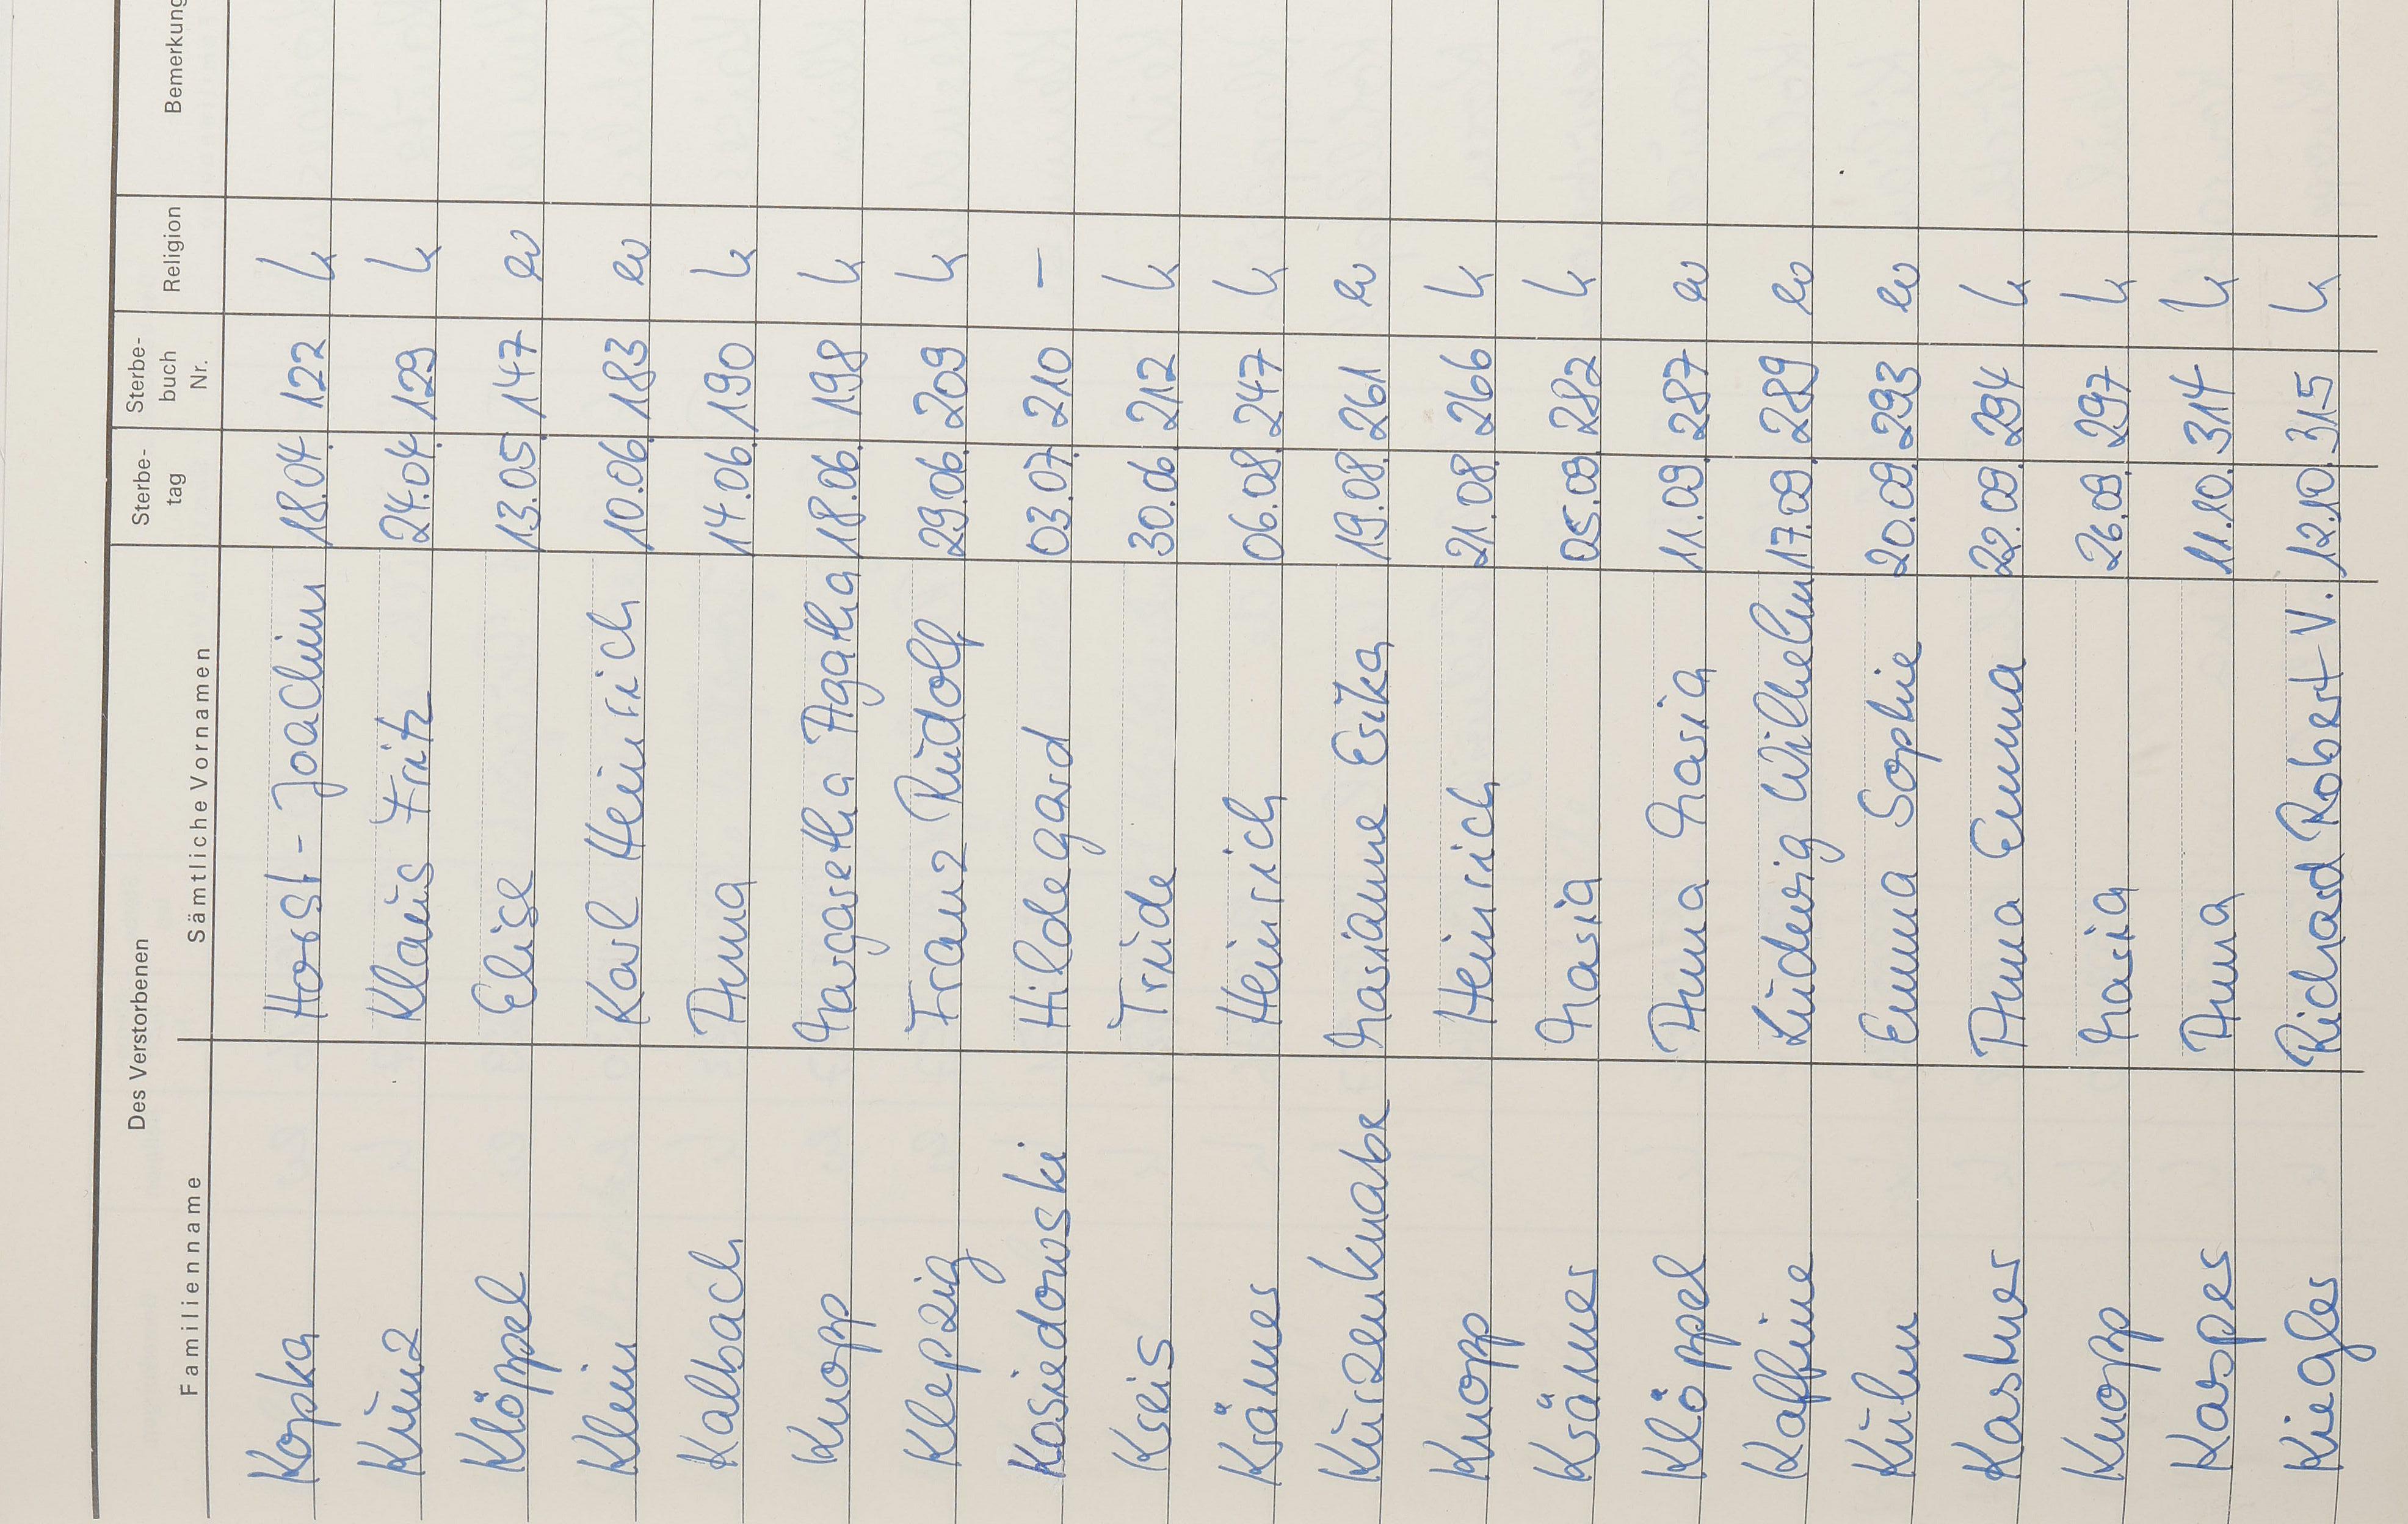 Des Verstorbenen Sterbe- Sterbe- Religion Bemerkung
tag buch
Nr.
Familienname Sämtliche Vornamen
Kopka Horst-Joachim 18.04. 122 k
Kunz Klaus Fritz 24.04. 129 k
Klöppel Elise 13.05. 147 ev
Klein Karl Heinrich 10.06. 183 ev
Kalbach Anna 14.06. 190 k
Knopp Margaretha Agatha 18.06. 198 k
Klepzig Franz Rudolf 29.06. 209 k
Kosiedowski Hildegard 03.07. 210 –
Kreis Trude 30.06. 212 k
Krämer Heinrich 06.08. 247 k
Kurzenknabe Marianne Erika 19.08. 261 ev
Knopp Heinrich 21.08. 266 k
Krämer Maria 05.09. 282 k
Klöppel Anna Maria 11.09. 287 ev
Kaffine Ludwig Wilhelm 17.09. 289 ev
Kuhn Emma Sophie 20.09. 293 ev
Kastner Anna Emma 22.09. 294 k
Knopp Maria 26.09. 297 k
Kasper Anna 11.10. 314 k
Kiegler Richard Robert V. 12.10. 315 k